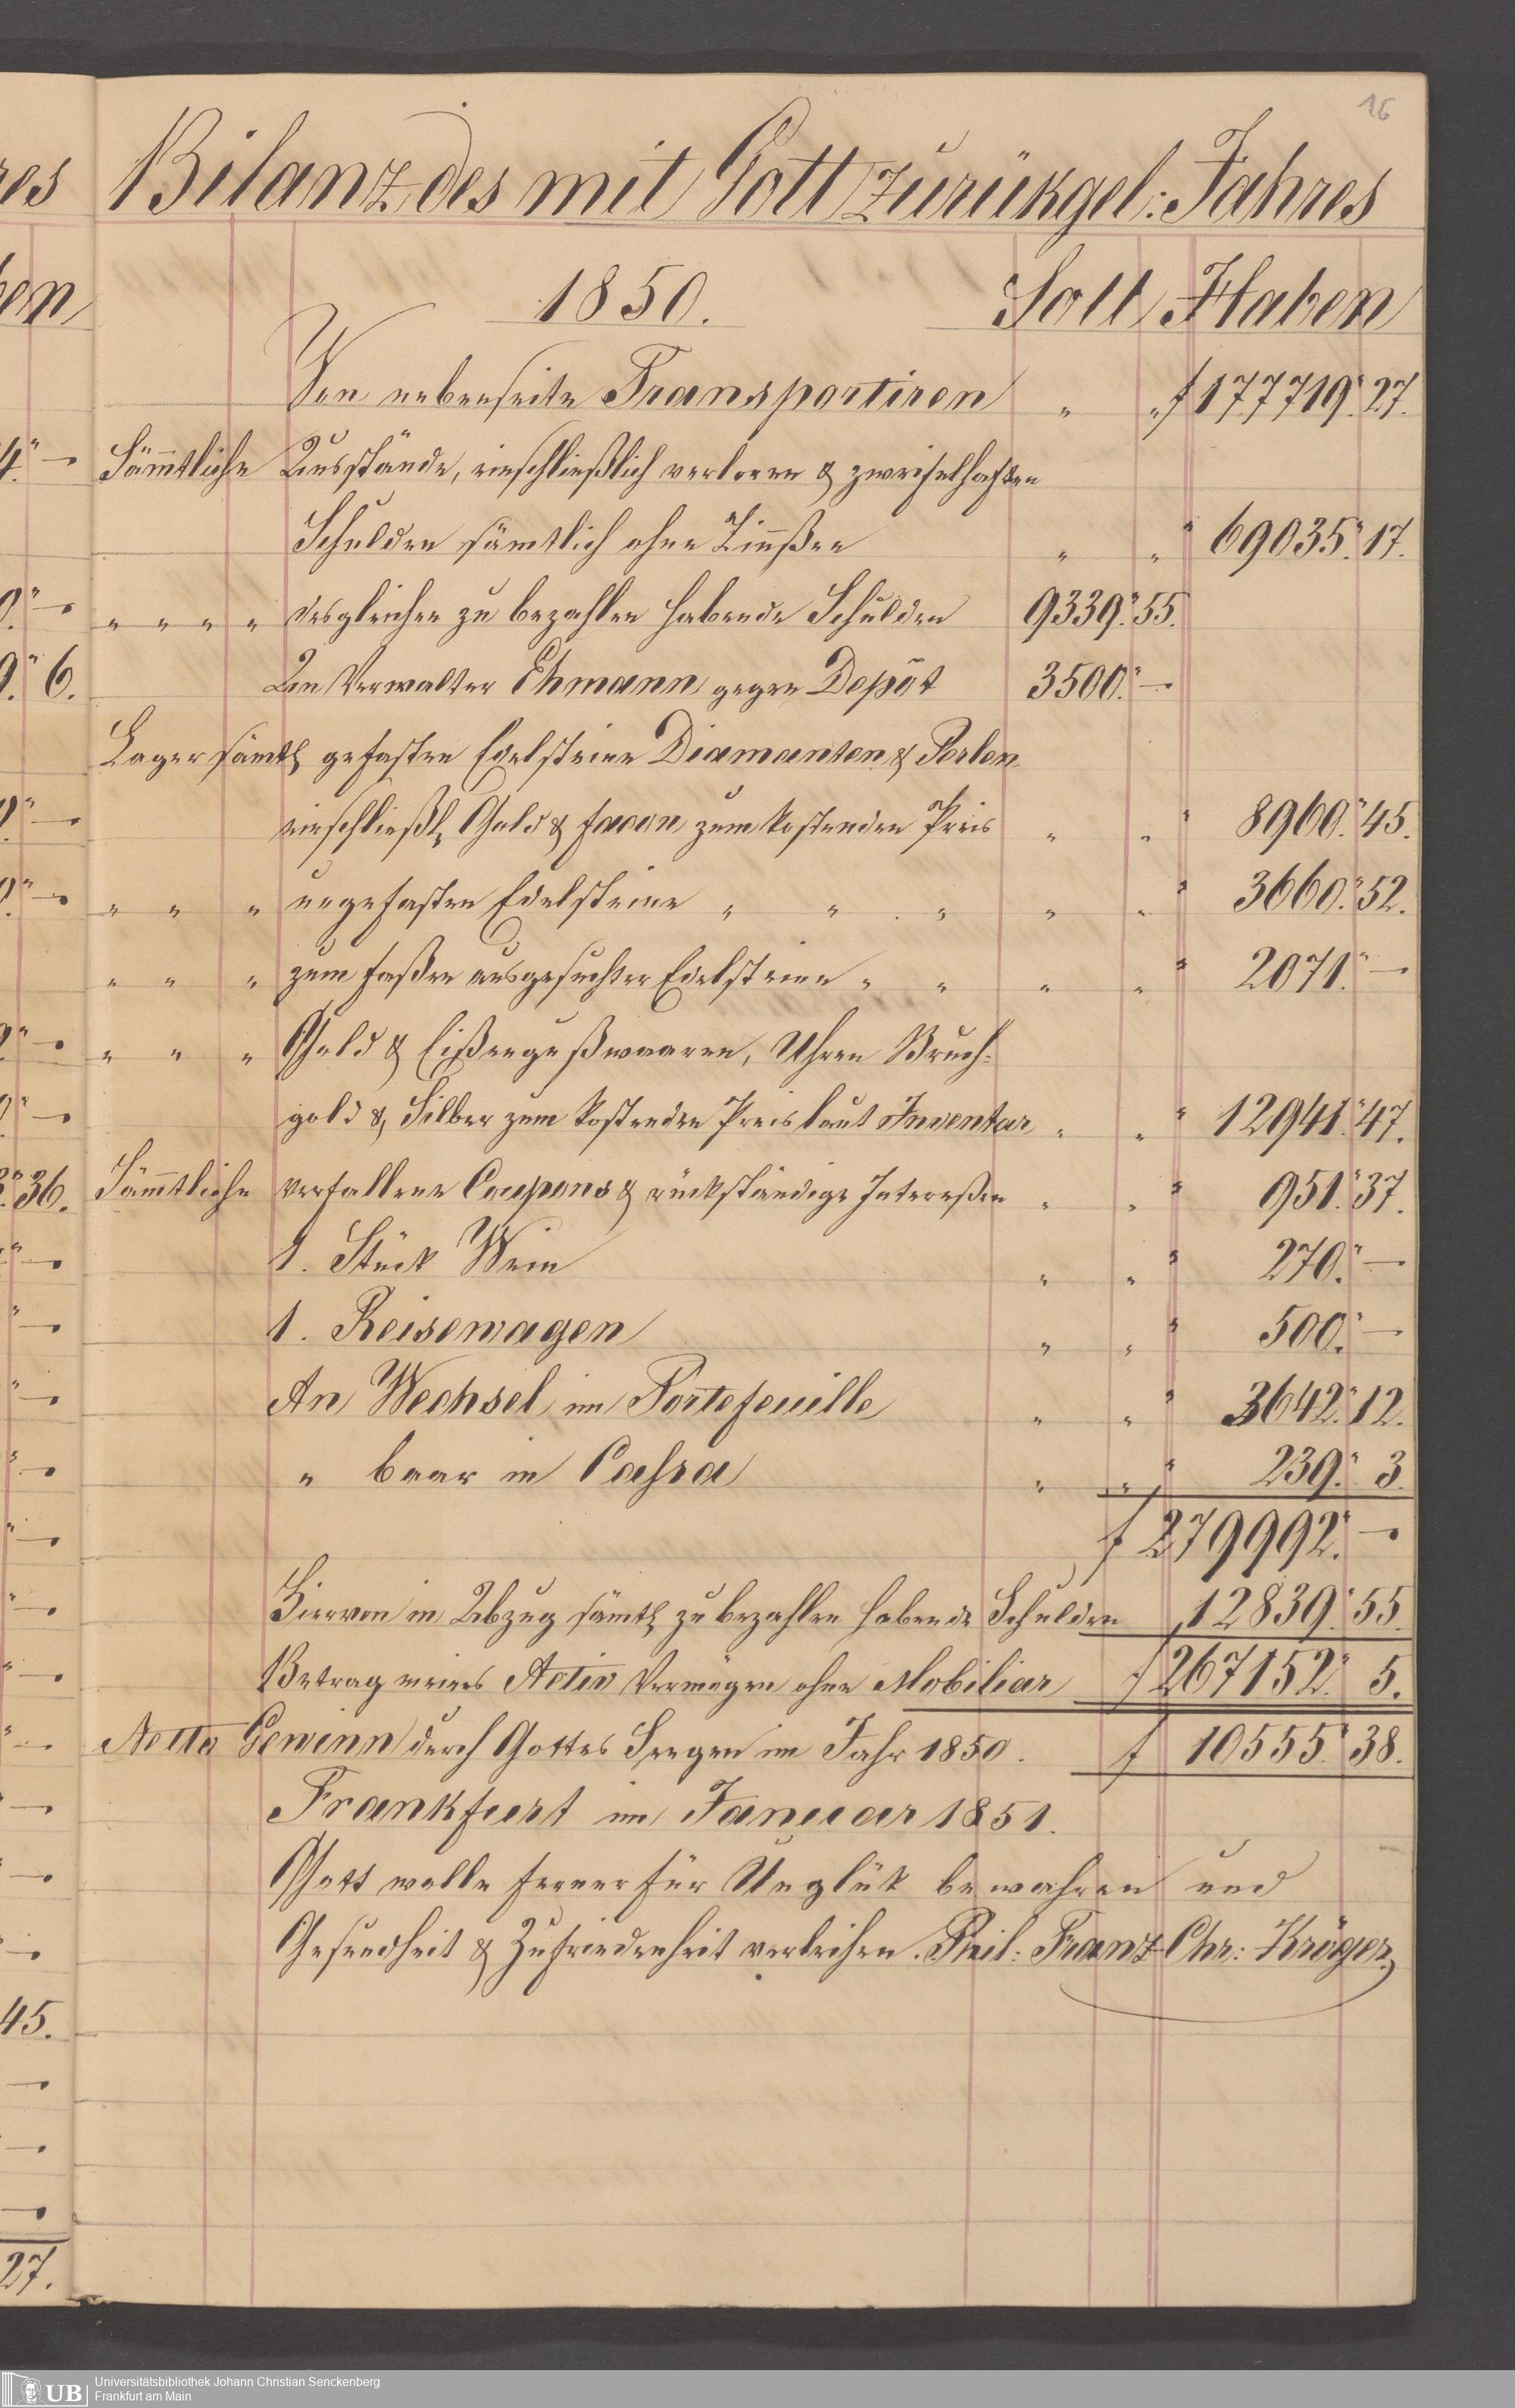 16
Bilanz des mit Gott zurükgel: Jahres
1850. Soll Haben
Von nebenseite Transportiren " " f 177719. 27.
Sämtliche Ausstände, einschließlich verloren & zweifelhaften
Schulden sämtlich ohne Zinßen " " " 69035. 17.
" " " " desgleichen zu bezahlen habende Schulden 9339. 55.
An Verwalter Ehmann gegen Depôt 3500. —
Lager sämtl gefasten Edelsteine Diamanten & Perlen
einschließl Gold & facon zum kostenden Preis " " " 8960. 45.
" " " ungefasten Edelsteine " " " " " " 3660. 52.
" " " zum faßen ausgesuchter Edelsteine " " " " " 2071. —
" " " Gold & Eißengußwaaren, Uhren Bruch-
gold & Silber zum kostenden Preis laut Inventar " " " 12941. 47.
Sämtliche verfallene Coupons & rückständige Intereßen " " " 951. 37.
1. Stück Wein " " " 270. —
1. Reisewagen " " " 500. —
An Wechsel im Portefeuille " " " 3642. 12.
" baar in Cassa " " " 239. 3.
f 279992. —
Hiervon in Abzug sämtl zu bezahlen habende Schulden " 12839. 55.
Betrag meines Activ Vermögen ohne Mobiliar f 267152. 5.
Netto Gewinn durch Gottes Seegen im Jahr 1850. f 10555. 38.
Frankfurt im Januar 1851.
Gott wolle ferner für Unglük bewahren und
Gesundheit & Zufriedenheit verleihen. Phil: Franz Chr: Kröger
res
en
4. —
0. —
9. 6.
9. —
0. —
9. —
9. —
3. 36.
45.
27.
UB Universitätsbibliothek Johann Christian Senckenberg
Frankfurt am Main